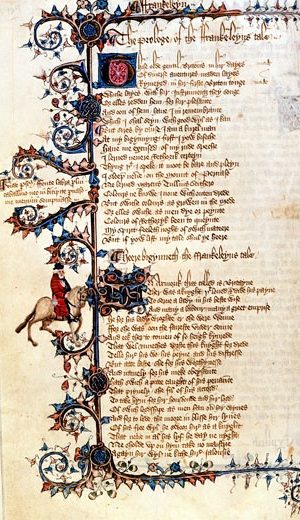 Frankeleyn
The prologe of the Frankeleyns tale
Thise olde gentil Britons in hir dayes
Of diuerse auentures maden layes
Rymeyed in hir firste Briton tonge
Whiche layes with hir Instrumentz they songe
Or elles redden hem for hir plesaunce
And oon of hem haue I in remembraunce
Which I shal seyn with good wyl as I kan
But sires by cause I am a burel man
At my bigynnyng first I yow biseche
Haue me excused of my rude speche
I lerned neuere Rethorik certeyn
Thyng þt I speke it moot be bare and pleyn
I sleep neuere on the Mount of Pernaso
Ne lerned Marcus Tullius Scithero
Colours ne knowe I none with outen drede
But swiche colours as growen in the mede
Or elles swiche as men dye or peynte
Colours of Rethoryk been to queynte
My spirit feeleth noght of swich mateere
But if yow list my tale shul ye heere
Heere bigynneth the Frankeleyns tale
In Armorik that called is Britayne
Ther was a knyght þt loued & dide his payne
To serue a lady in his beste wise
And many a labour many a greet emprise
He for his lady wroghte er she were wonne
For she was oon the faireste vnder sonne
And eek therto comen of so heigh kynrede
That wel vnnethes dorste this knyght for drede
Telle hire his wo his peyne and his distresse
But atte laste she for his worthynesse
And namely for his meke obeysaunce
Hath swich a pitee caught of his penaunce
That pryuely she fil of his accord
To take hym for hir housbonde and hir lord
Of swich lordshipe as men han ouer hir wyues
And for to lede the moore in blisse hir lyues
Of his free wyl he swoor hire as a knyght
That neuere in al his lyf he day ne nyght
Ne sholde vp on hym take no maistrie
Agayn hir wyl ne kithe hire Ialousie